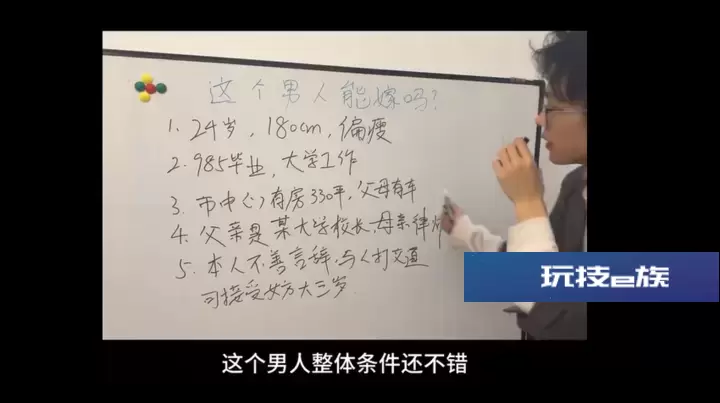 这个男人能嫁吗?
1. 24岁，180cm，偏瘦
2. 985毕业，大学工作
3. 市中心有房330平，父母有车
4. 父亲是某大学校长，母亲律师
5. 本人不善言辞，与人打交道
可接受女方大三岁
玩技e族
这个男人整体条件还不错